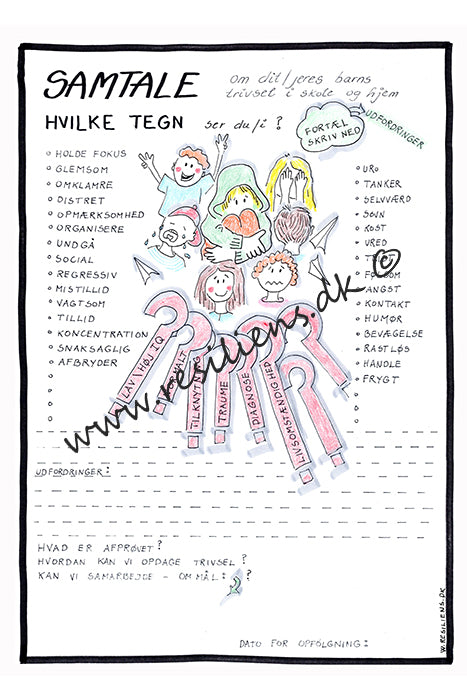 SAMTALE om dit/jeres barns
trivsel i skole og hjem
HVILKE TEGN ser du/i?
FORTÆL
SKRIV NED
UDFORDRINGER
HOLDE FOKUS
GLEMSOM
OMKLAMRE
DISTRET
OPMÆRKSOMHED
ORGANISERE
UNDGÅ
SOCIAL
REGRESSIV
MISTILLID
VAGTSOM
TILLID
KONCENTRATION
SNAKSAGLIG
AFBRYDER
URO
TANKER
SELVVÆRD
SØVN
KOST
VRED
FØLSOM
ANGST
KONTAKT
HUMØR
BEVÆGELSE
RASTLØS
HANDLE
FRYGT
LAV \ HØJ IQ
TILKNYTNING
TRAUME
DIAGNOSE
LIVSOMSTÆNDIGHED
www.resiliens.dk ©
UDFORDRINGER:
HVAD ER AFPRØVET?
HVORDAN KAN VI OPDAGE TRIVSEL?
KAN VI SAMARBEJDE - OM MÅL: ?
DATO FOR OPFØLGNING:
W.RESILIENS.DK